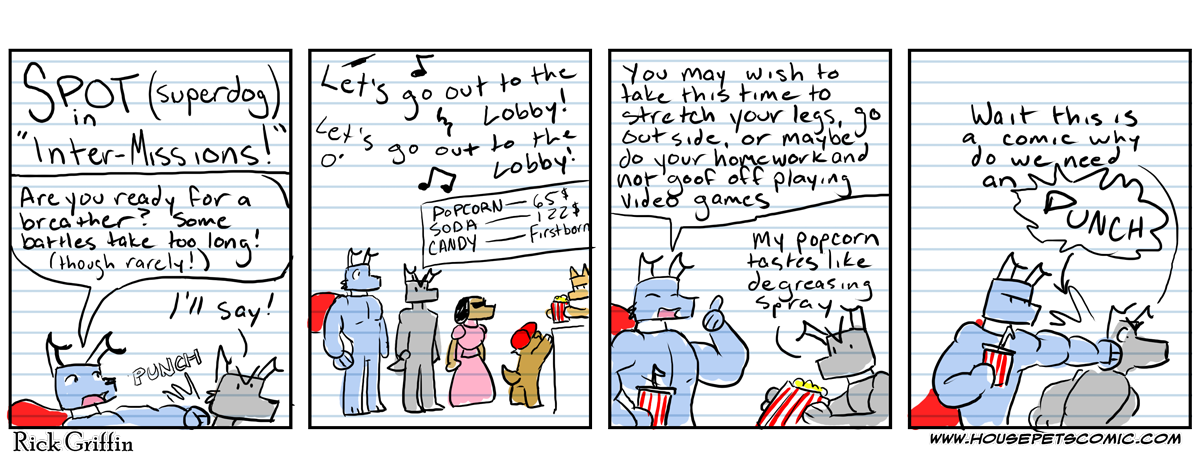 SPOT (superdog)
in
"Inter-Missions!"
Are you ready for a
breather? Some
battles take too long!
(though rarely!)
I'll say!
PUNCH
Let's go out to the
Lobby!
Let's go out to the
Lobby!
POPCORN — 65$
SODA — 122$
CANDY — Firstborn
You may wish to
take this time to
stretch your legs, go
outside, or maybe
do your homework and
not goof off playing
video games
My popcorn
tastes like
degreasing
spray
Wait this is
a comic why
do we need
an
PUNCH
Rick Griffin
WWW.HOUSEPETSCOMIC.COM